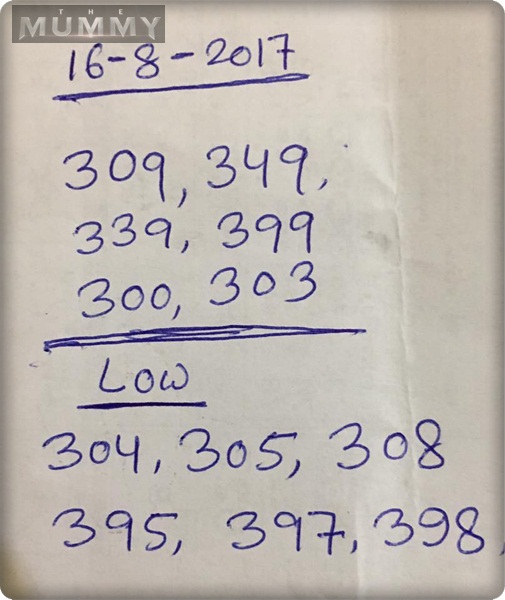 THE
MUMMY
16-8-2017
309, 349,
339, 399
300, 303
LOW
304, 305, 308
395, 397, 398,